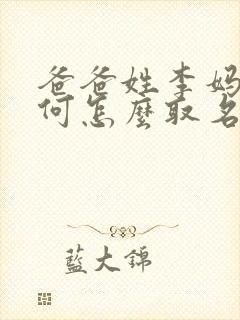 爸爸姓李妈
何怎麼取名
藍大錦